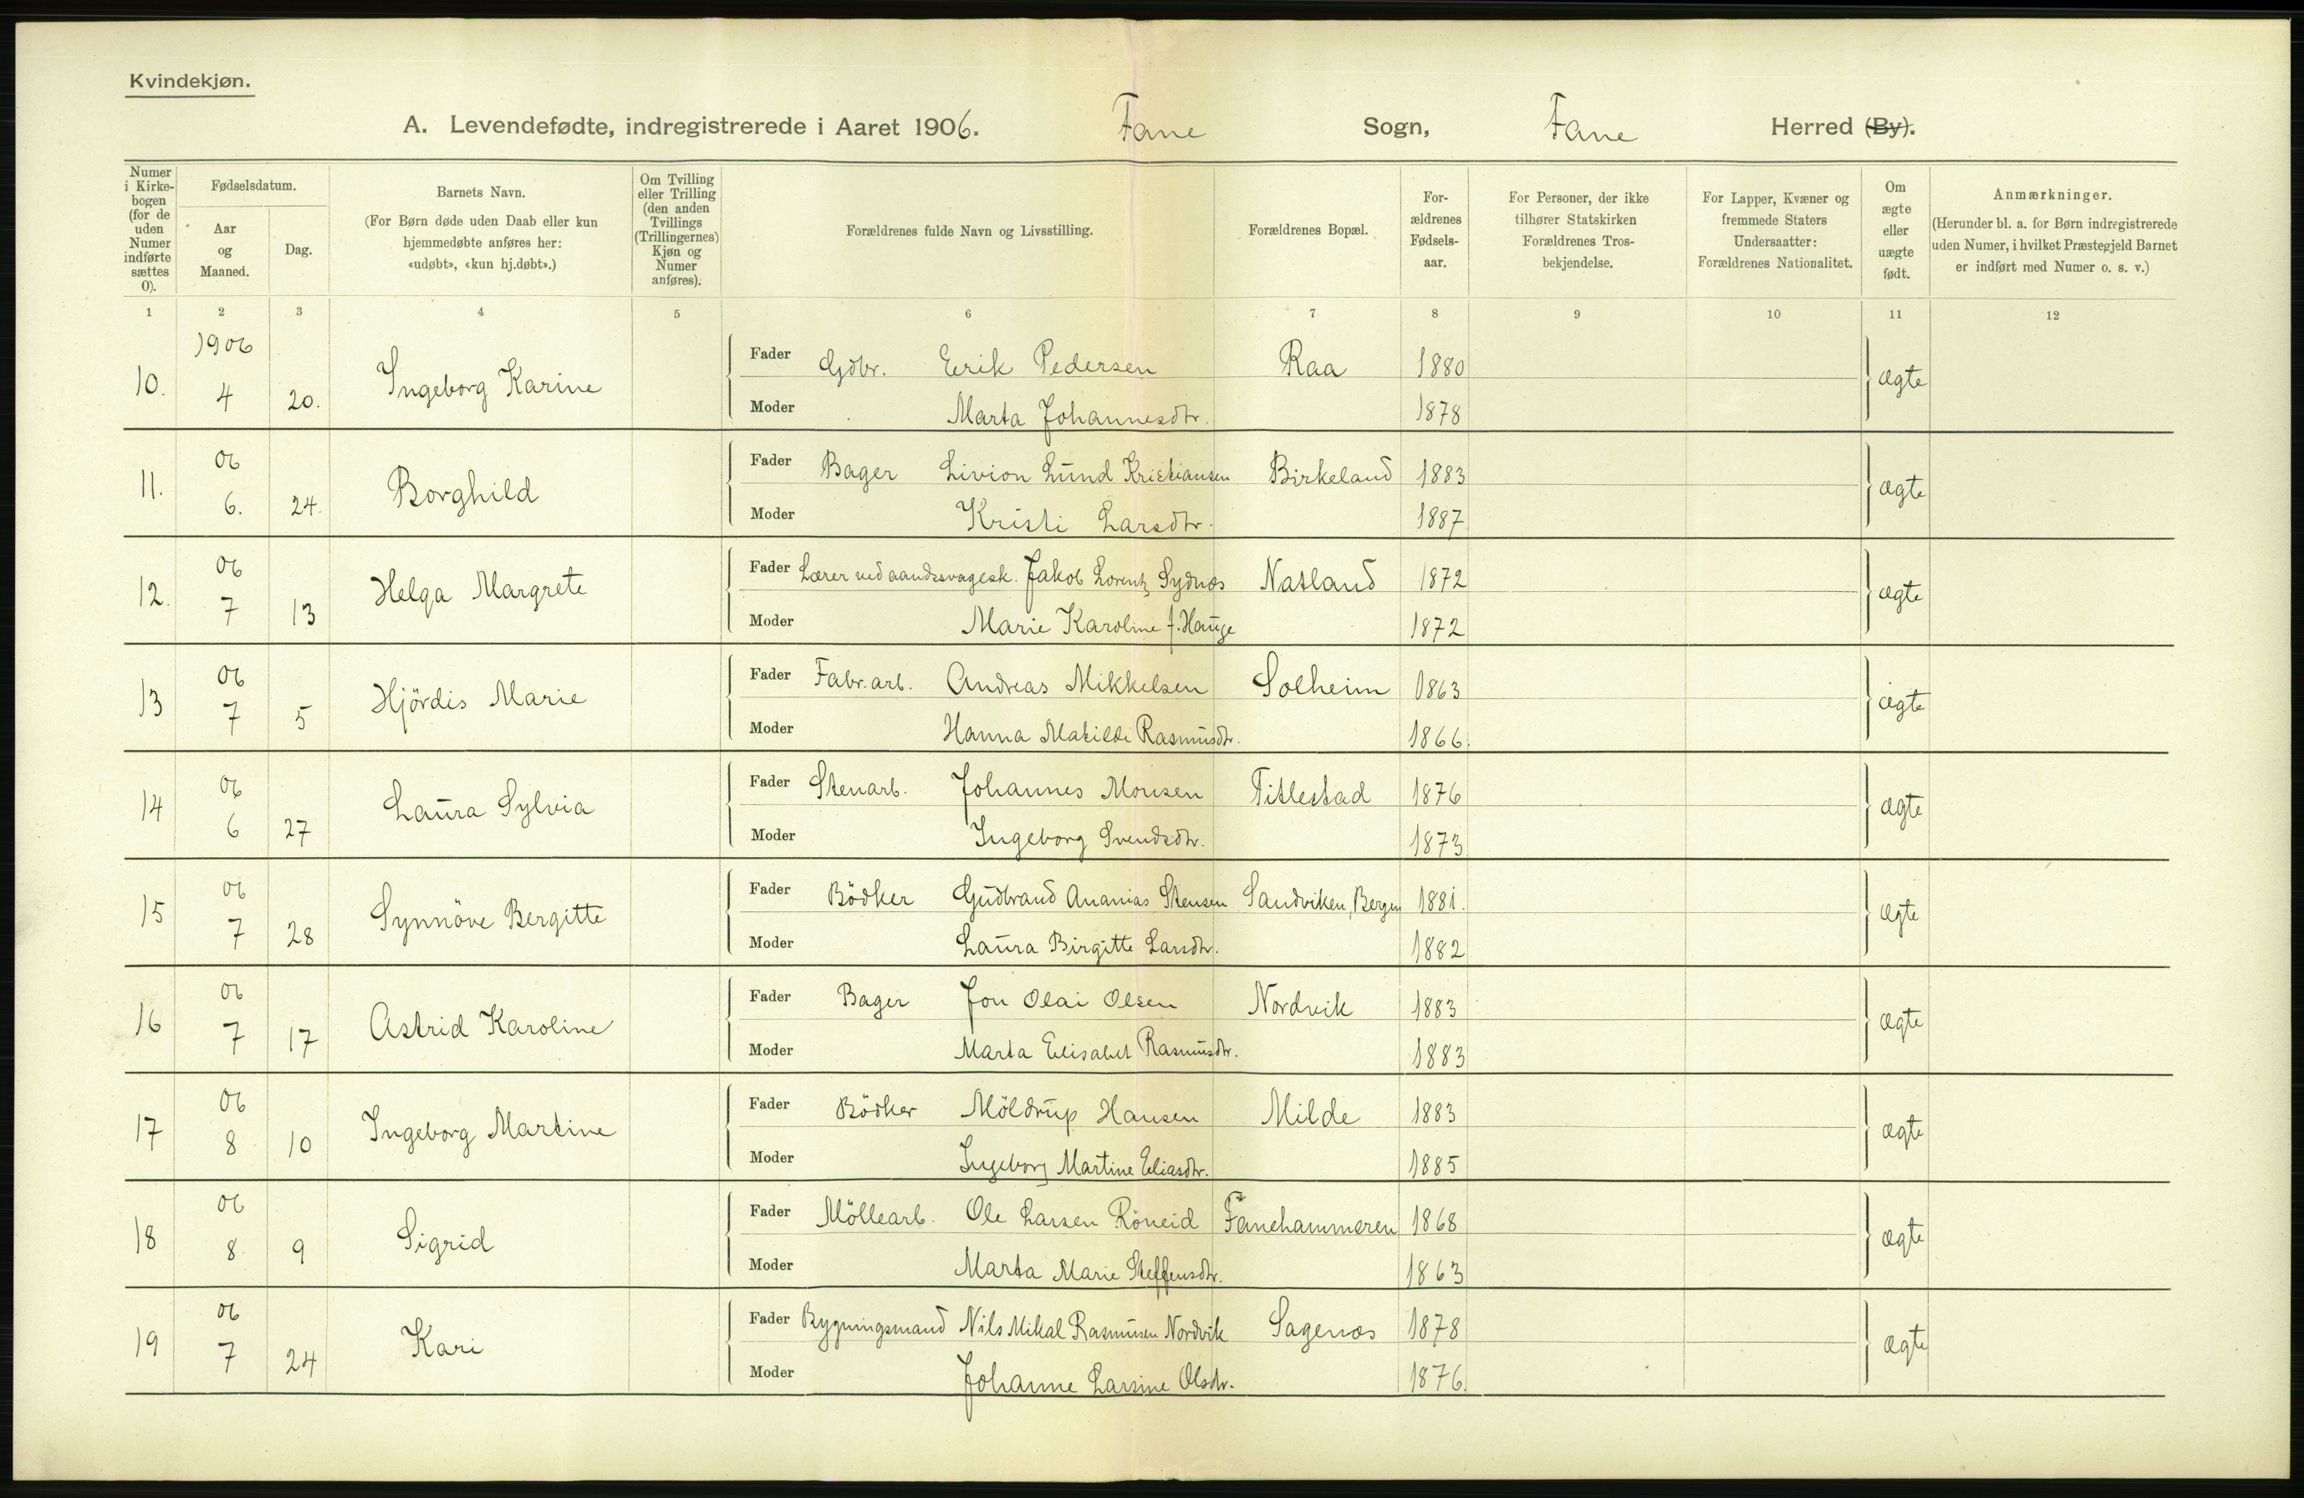 Kvindekjøn.
A. Levendefødte, indregistrerede i Aaret 1906. Fane Sogn, Fane Herred (By).
Numer i Kirkebogen (for de uden Numer indførte sættes 0).
Fødselsdatum.
Aar og Maaned.
Dag.
Barnets Navn.
(For Børn døde uden Daab eller kun hjemmedøbte anføres her: «udøbt», «kun hj.døbt».)
Om Tvilling eller Trilling (den anden Tvillings (Trillingernes) Kjøn og Numer anføres).
Forældrenes fulde Navn og Livsstilling.
Forældrenes Bopæl.
Forældrenes Fødselsaar.
For Personer, der ikke tilhører Statskirken Forældrenes Trosbekjendelse.
For Lapper, Kvæner og fremmede Staters Undersaatter: Forældrenes Nationalitet.
Om ægte eller uægte født.
Anmærkninger.
(Herunder bl. a. for Børn indregistrerede uden Numer, i hvilket Præstegjeld Barnet er indført med Numer o. s. v.)
1 2 3 4 5 6 7 8 9 10 11 12
10. 1906 4 20. Ingeborg Karine Fader Gdbr. Erik Pedersen Raa 1880 ægte
Moder Marta Johannesdtr. 1878
11. 06 6. 24. Borghild Fader Bager Livion Lund Kristiansen Birkeland 1883 ægte
Moder Kristi Larsdtr. 1887
12. 06 7 13 Helga Margrete Fader Lærer ved aandssvagesk. Jakob Lorentz Sydnæs Natland 1872 ægte
Moder Marie Karoline f. Hauge 1872
13 06 7 5 Hjördis Marie Fader Fabr.arb. Andreas Mikkelsen Solheim 1863 ægte
Moder Hanna Matilde Rasmusdtr. 1866.
14 06 6 27 Laura Sylvia Fader Stenarb. Johannes Monsen Titlestad 1876 ægte
Moder Ingeborg Svendsdtr. 1873
15 06 7 28 Synnöve Bergitte Fader Bödker Gudbrand Ananias Stensen Sandviken, Bergen 1881. ægte
Moder Laura Birgitte Larsdtr. 1882
16 06 7 17 Astrid Karoline Fader Bager Jon Olai Olsen Nordvik 1883 ægte
Moder Marta Elisabet Rasmusdtr. 1883
17 06 8 10 Ingeborg Martine Fader Bödker Möldrup Hansen Milde 1883 ægte
Moder Ingeborg Martine Eliasdtr. 1885
18 06 8 9 Sigrid Fader Möllearb. Ole Larsen Röneid Fanehammeren 1868 ægte
Moder Marta Marie Steffensdtr. 1863
19 06 7 24 Kari Fader Bygningsmand Nils Mikal Rasmusen Nordvik Sagenæs 1878 ægte
Moder Johanne Larsine Olsdtr. 1876.